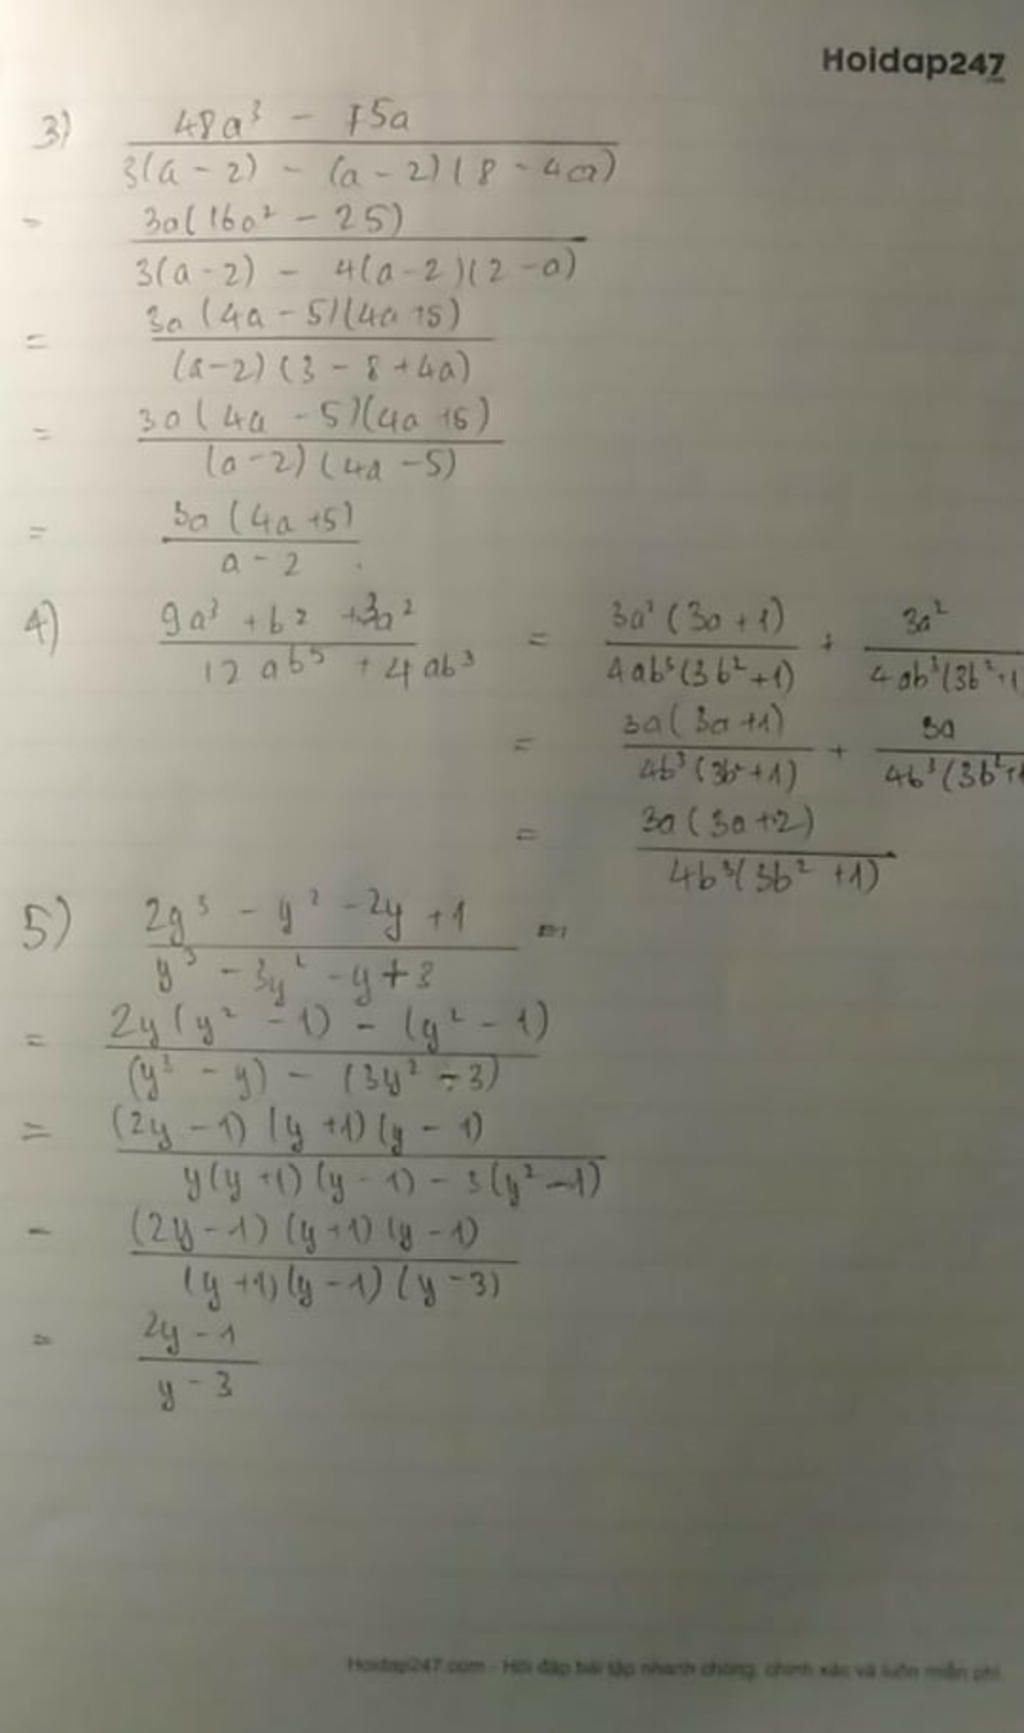 Hoidap247
3) 48a³ - 75a
3(a - 2) - (a - 2)(8 - 4a)
= 3a(16a² - 25)
3(a - 2) - 4(a - 2)(2 - a)
= 3a(4a - 5)(4a+5)
(a-2)(3 - 8 + 4a)
= 3a(4a - 5)(4a+5)
(a-2)(4a - 5)
= 3a(4a+5)
a - 2
4) 9a³ + b2 + 3a² = 3a²(3a + 1) + 3a²
12ab⁵ + 4ab³ 4ab³(3b²+1) 4ab³(3b²+1
= 3a(3a+1) + 3a
4b³(3b²+1) 4b³(3b²+1
= 3a(3a+2)
4b³(3b²+1)
5) 2y³ - y² - 2y + 1 =
y³ - 3y² - y + 3
= 2y(y² - 1) - (y² - 1)
(y³ - y) - (3y² - 3)
= (2y - 1)(y+1)(y - 1)
y(y+1)(y - 1) - 3(y² - 1)
= (2y - 1)(y+1)(y - 1)
(y+1)(y - 1)(y - 3)
= 2y - 1
y - 3
Hoidap247.com - Hỏi đáp bài tập nhanh chóng, chính xác và luôn miễn phí